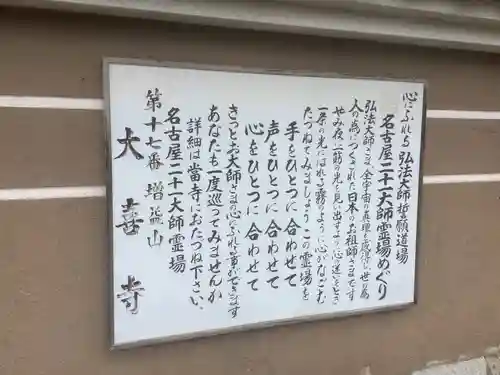 心にふれる 弘法大師誓願道場
名古屋二十一大師霊場めぐり
弘法大師さまは全宇宙の真理を感得し世の為
人の為につくされた日本のお祖師さまです
やみ夜に一筋の光を見い出すように心迷うとき
一条の光にはれる霧のように心がなごむ
たづねてみましょうこの霊場を
手をひとつに合わせて
声をひとつに合わせて
心をひとつに合わせて
きっとお大師さまの心にふれる旅ができます
あなたも一度巡ってみませんか
詳細は當寺におたづね下さい。
名古屋二十一大師霊場
第十七番 増益山
大喜寺